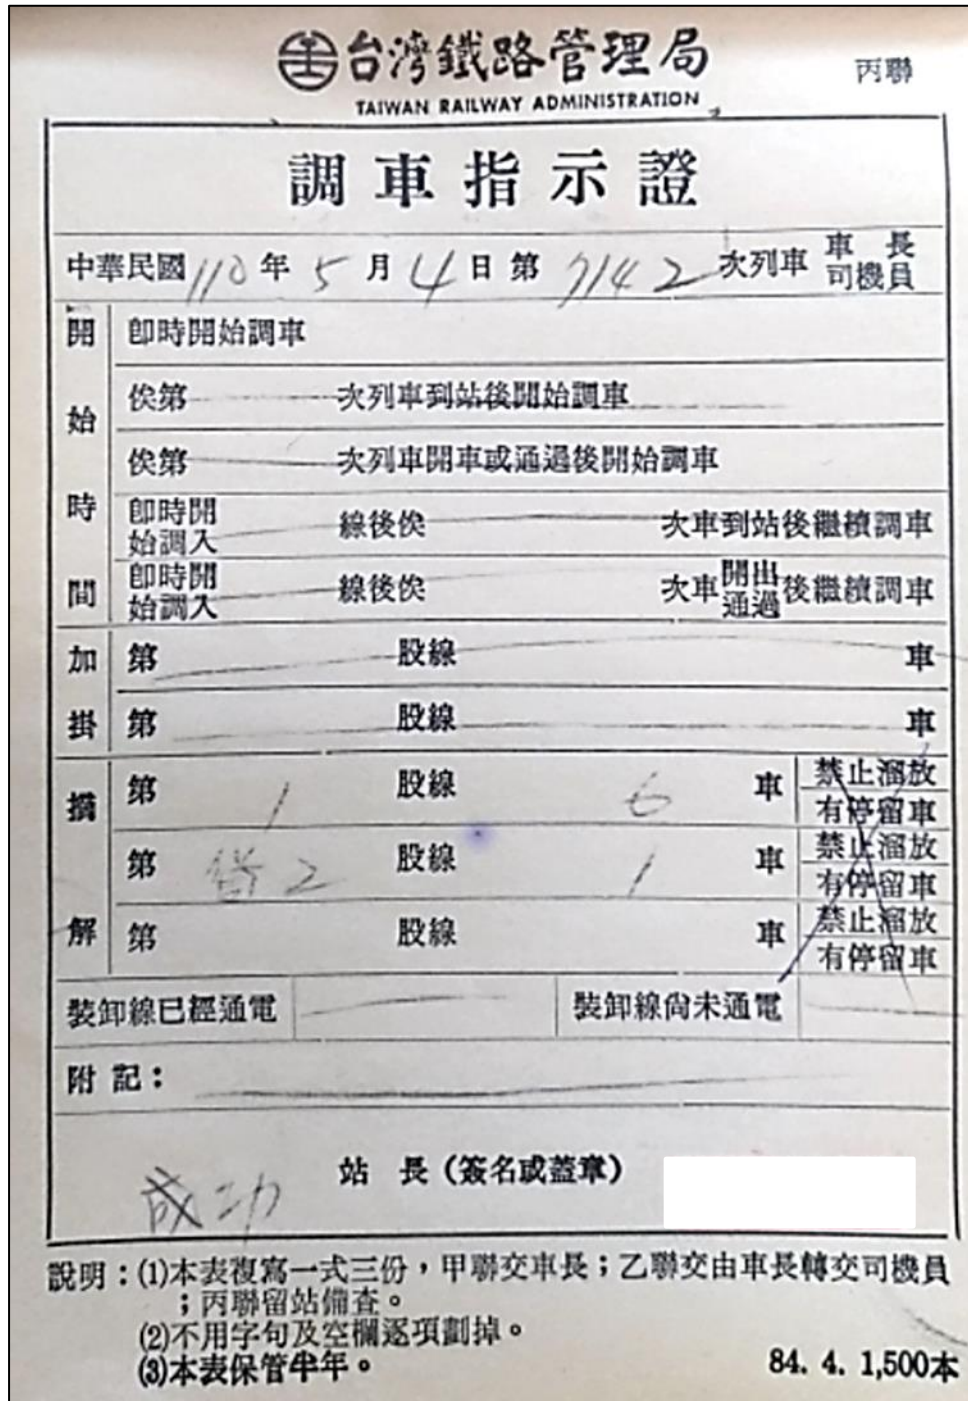 台灣鐵路管理局
丙聯
TAIWAN RAILWAY ADMINISTRATION
調車指示證
中華民國110年5月4日第7142次列車 車長 司機員
開始時間
即時開始調車
俟第 次列車到站後開始調車
俟第 次列車開車或通過後開始調車
即時開始調入 線後俟 次車到站後繼續調車
即時開始調入 線後俟 次車開出通過後繼續調車
加掛
第 股線 車
第 股線 車
摘解
第 1 股線 6 車 禁止溜放 有停留車
第 2 股線 1 車 禁止溜放 有停留車
第 股線 車 禁止溜放 有停留車
裝卸線已經通電 裝卸線尚未通電
附記：
成功 站 長（簽名或蓋章）
說明：(1)本表複寫一式三份，甲聯交車長；乙聯交由車長轉交司機員
；丙聯留站備查。
(2)不用字句及空欄逐項劃掉。
(3)本表保管半年。
84. 4. 1,500本